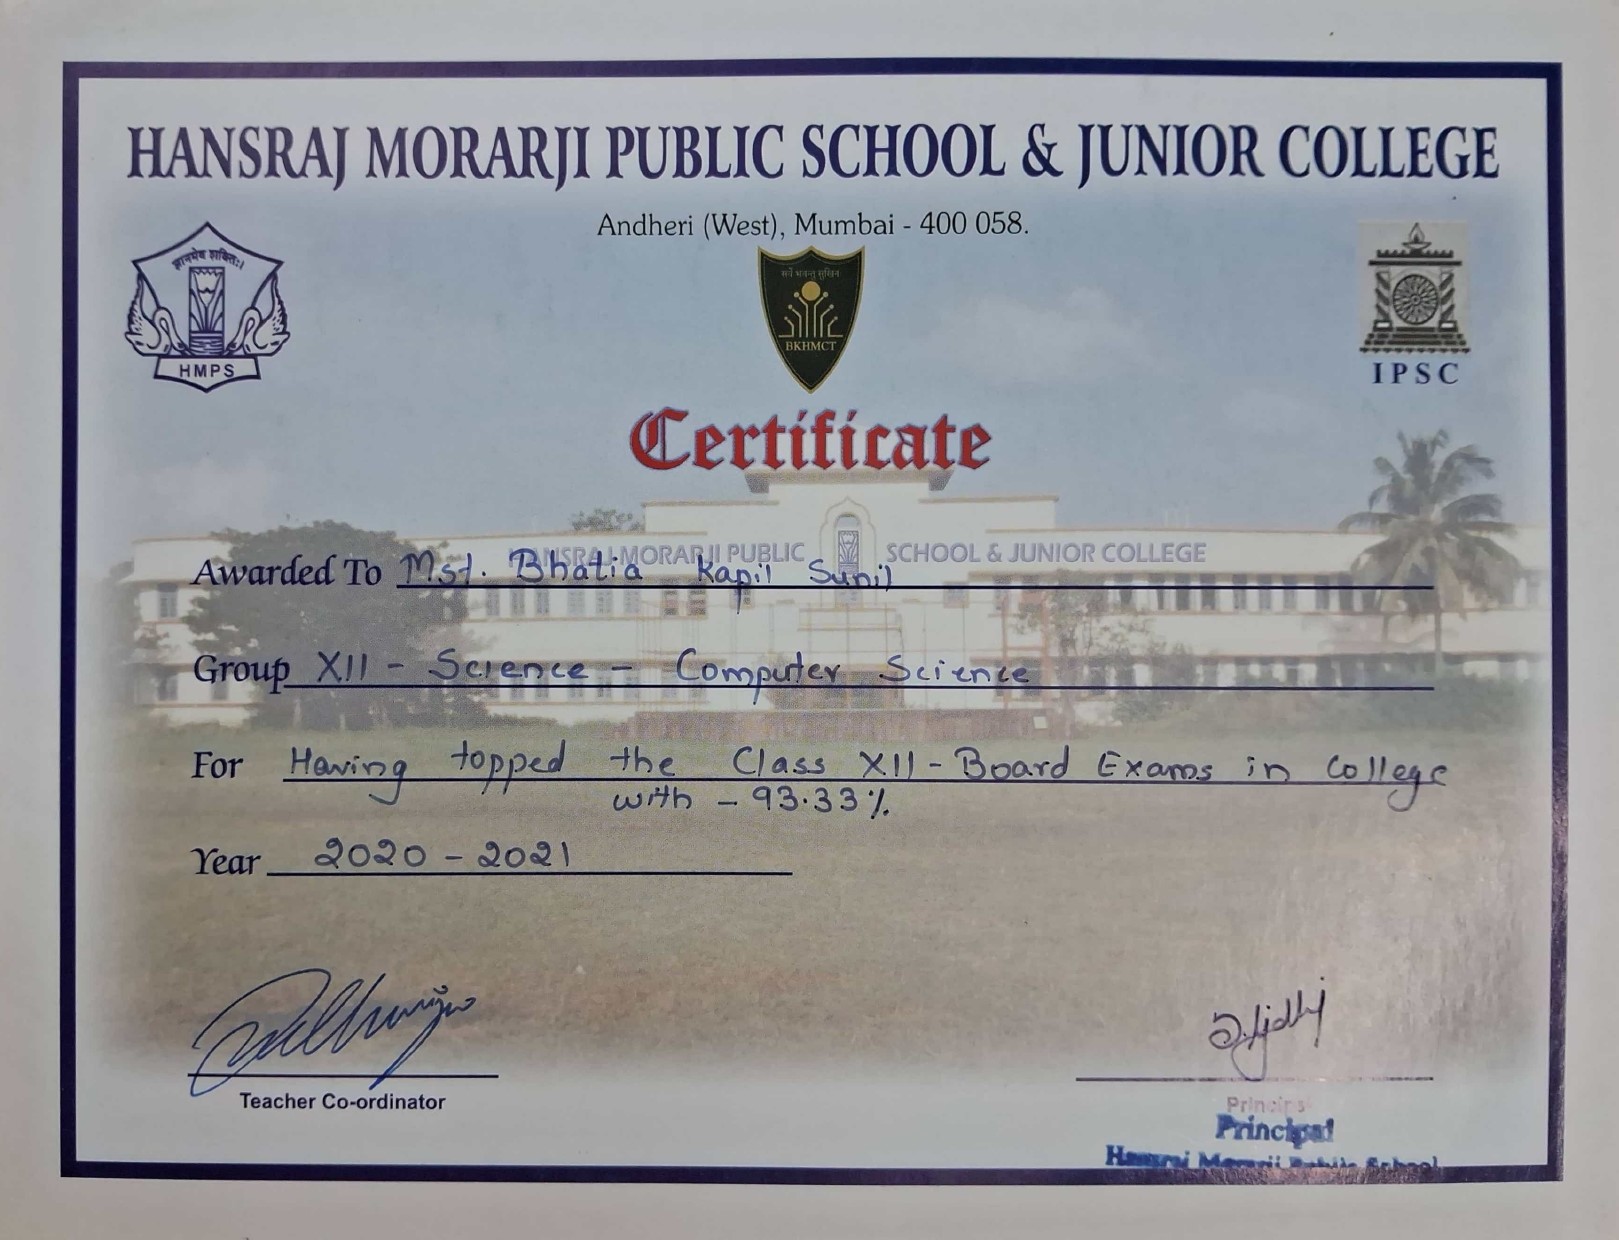 HANSRAJ MORARJI PUBLIC SCHOOL & JUNIOR COLLEGE
Andheri (West), Mumbai - 400 058.
ज्ञानमेव शक्तिः।
HMPS
सर्वे भवन्तु सुखिन
BKHMCT
IPSC
Certificate
ANSRAJ MORARJI PUBLIC SCHOOL & JUNIOR COLLEGE
Awarded To Mst. Bhatia Kapil Sunil
Group XII - Science - Computer Science
For Having topped the Class XII - Board Exams in College
with - 93.33%.
Year 2020 - 2021
Teacher Co-ordinator
Principal
Principal
Hansraj Morarji Public School